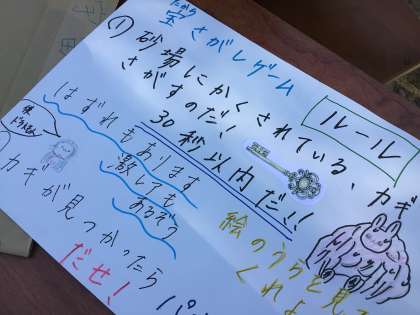 たから
宝さがしゲーム
ルール
①砂場にかくされている、カギ
さがすのだ!
30秒以内だ!!
はずれもあります
カギが見つかったら
だせ!
絵のうらを見て
くれよ